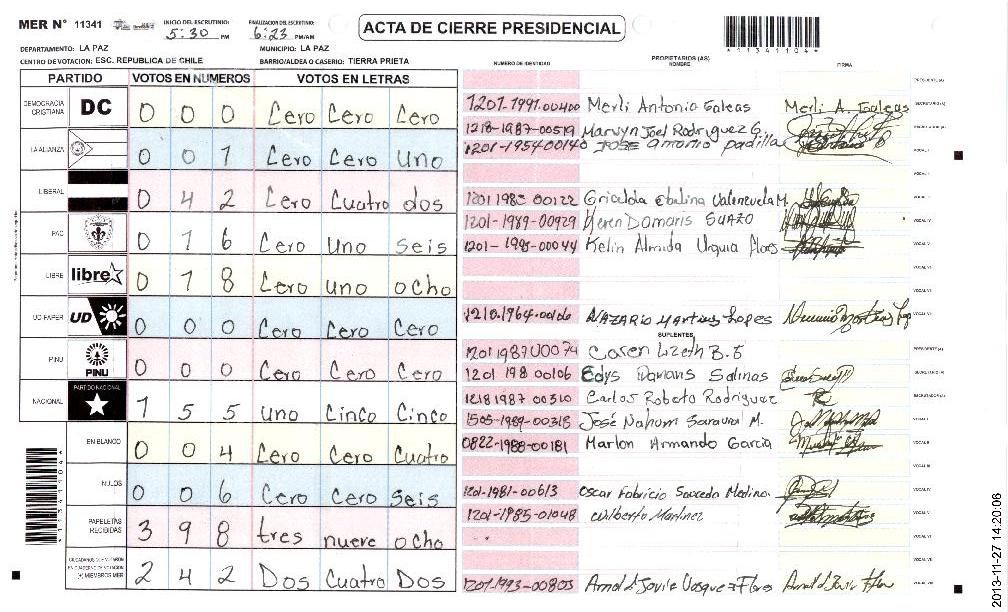 MER N° 11341
INICIO DEL ESCRUTINIO: 5:30 PM
FINALIZACION DEL ESCRUTINIO: 6:23 PM/AM
ACTA DE CIERRE PRESIDENCIAL
113411041
DEPARTAMENTO: LA PAZ MUNICIPIO: LA PAZ
CENTRO DE VOTACION: ESC. REPUBLICA DE CHILE BARRIO/ALDEA O CASERIO: TIERRA PRIETA
NUMERO DE IDENTIDAD PROPIETARIOS (AS) NOMBRE FIRMA
PARTIDO VOTOS EN NUMEROS VOTOS EN LETRAS
DEMOCRACIA CRISTIANA DC 0 0 0 Cero Cero Cero
LA ALIANZA 0 0 1 Cero Cero uno
LIBERAL 0 4 2 Cero Cuatro dos
PAC 0 1 6 Cero Uno Seis
LIBRE libre 0 1 8 Cero uno ocho
UD-FAPER UD 0 0 0 Cero Cero Cero
PINU PINU 0 0 0 Cero Cero Cero
NACIONAL PARTIDO NACIONAL 1 5 5 uno Cinco Cinco
EN BLANCO 0 0 4 Cero Cero Cuatro
NULOS 0 0 6 Cero Cero Seis
PAPELETAS RECIBIDAS 3 9 8 tres nueve ocho
CIUDADANOS QUE VOTARON EN CUADERNO DE VOTACION (+) MIEMBROS MER 2 4 2 Dos Cuatro Dos
PRESIDENTE (A)
1201-1991-00400 Merli Antonio Galeas Merli A. Galeas SECRETARIO (A)
1218-1987-00519 Marvyn Joel Rodriguez G.
1201-1954-00140 JOSE antonio padilla VOCAL I
1201 1983 00122 Gricelda
1201-1989-00929 Keren Damaris SUAZO VOCAL IV
1201-1995-00044 Kelin Almida Urquia flores VOCAL V
VOCAL VI
VOCAL VII
NAZARIO Martinez Lopes
SUPLENTES
Caren Lizeth B. PRESIDENTE (A)
1201 198 00106 Edys Salinas SECRETARIO (A)
1218 1987 00310 Carlos Roberto Rodriguez
1505-1989-00318 José Nahum M. VOCAL I
0822-1988-00181 Marlon Armando Garcia VOCAL II
VOCAL III
1201-1981-00613 Oscar Fabricio Sauceda Medina VOCAL IV
1201-1985-01048 Wilberto Martinez VOCAL V
VOCAL VI
VOCAL VII
1201-1993-00803 Arnold Javie Vasquez Flores
2013-11-27 14:20:06